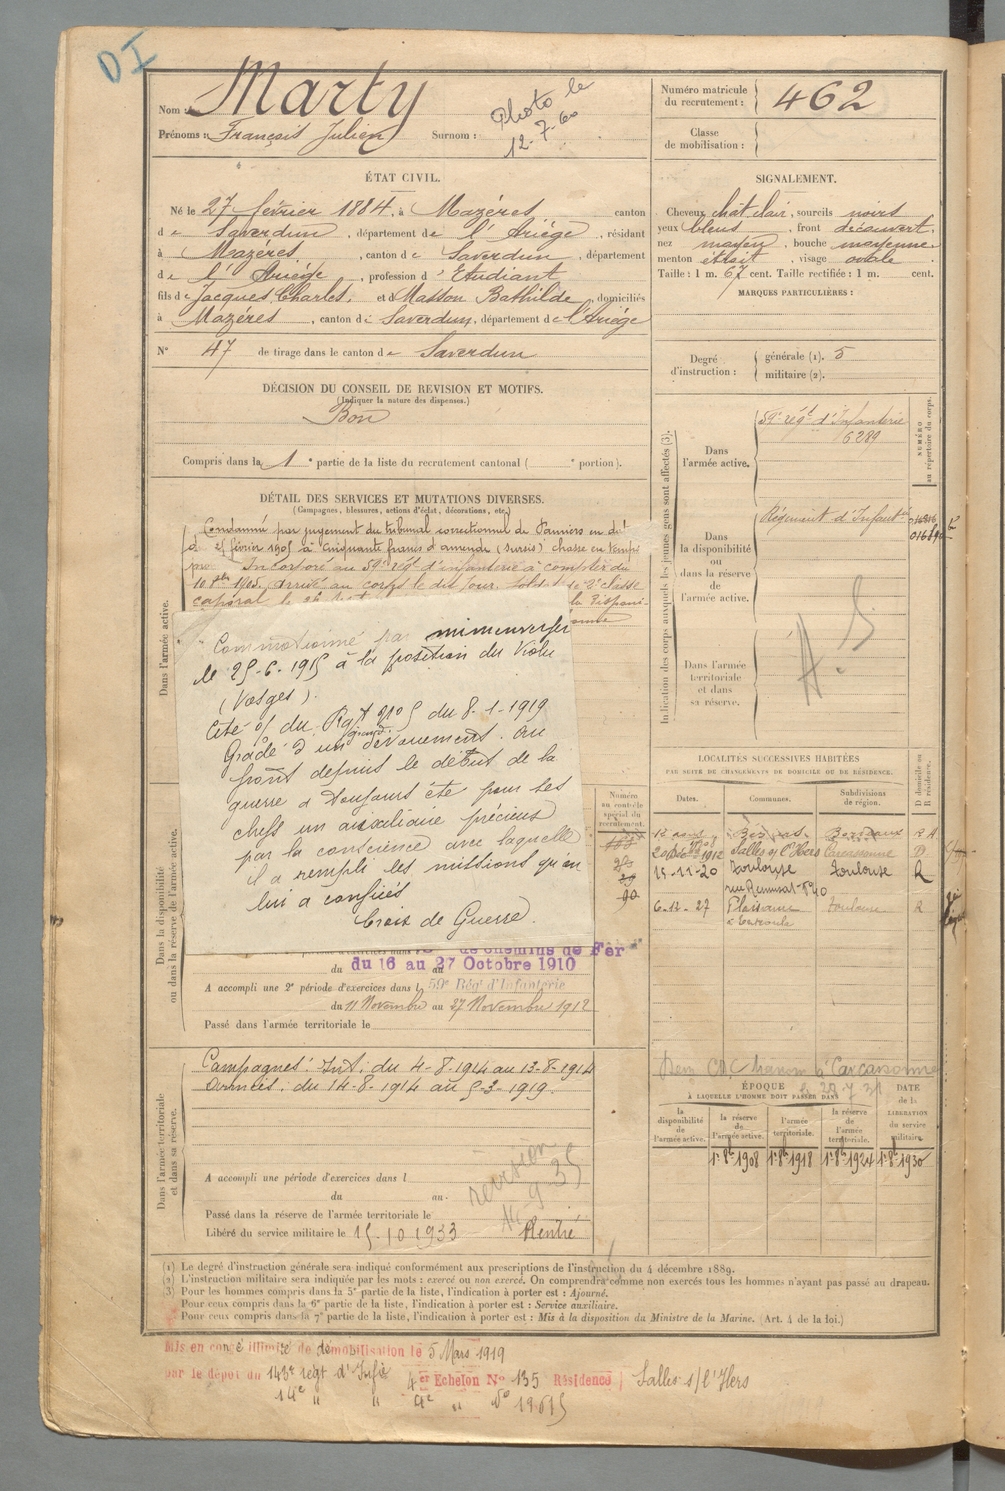 DI
Nom : Marty
Prénoms : François Julien Surnom :
Photo le
12-7-60
Numéro matricule
du recrutement : 462
Classe
de mobilisation :
ÉTAT CIVIL.
Né le 27 février 1884, à Mazéres canton
de Saverdun, département de l'Ariége, résidant
à Mazéres, canton de Saverdun, département
de l'Ariége, profession d'Etudiant
fils de Jacques Charles, et de Masson Bathilde, domiciliés
à Mazéres, canton de Saverdun, département de l'Ariége
N° 47 de tirage dans le canton de Saverdun
SIGNALEMENT.
Cheveux chat clair, sourcils noirs
yeux bleus, front découvert,
nez moyen, bouche moyenne
menton étroit, visage ovale.
Taille : 1 m. 67 cent. Taille rectifiée : 1 m. cent.
MARQUES PARTICULIÈRES :
Degré
d'instruction :
générale (1). 5
militaire (2).
DÉCISION DU CONSEIL DE REVISION ET MOTIFS.
(Indiquer la nature des dispenses.)
Bon
Compris dans la 1e partie de la liste du recrutement cantonal ( e portion).
Indication des corps auxquels les jeunes gens sont affectés (3).
NUMÉRO
au répertoire du corps.
Dans
l'armée active.
59e régt d'Infanterie
6289
Dans
la disponibilité
ou
dans la réserve de
l'armée active.
Régiment d'Infant
Dans l'armée
territoriale
et dans
sa réserve.
A.S
DÉTAIL DES SERVICES ET MUTATIONS DIVERSES.
(Campagnes, blessures, actions d'éclat, décorations, etc.)
Dans l'armée active.
Condamné par jugement du tribunal correctionnel de Pamiers en date
février 1905 à cinquante francs d'amende (sursis) chasse en temps
Incorporé au 59e régt d'infanterie à compter du
1905, arrivé au corps le dit jour, soldat de 2e classe
caporal le
la Disponi-
Commotionné par minenwerfer
le 25-6-1915 à la position du Violu
(Vosges).
Cité O/ du Rgt n° 5 du 8-1-1919
Gradé d'un grand dévouement. Au
front depuis le début de la
guerre a toujours été pour ses
chefs un auxiliaire précieux
par la conscience avec laquelle
il a rempli les missions qu'on
lui a confiées
Croix de Guerre.
Numéro
au contrôle
spécial du
recrutement.
90
Dans la disponibilité
ou dans la réserve de l'armée active.
de Chemins de Fer
du du 16 au 27 Octobre 1910
A accompli une 2e période d'exercices dans l 59e Rég' d'Infanterie
du 11 Novembre au 27 Novembre 1912
Passé dans l'armée territoriale le
LOCALITÉS SUCCESSIVES HABITÉES
PAR SUITE DE CHANGEMENTS DE DOMICILE OU DE RÉSIDENCE.
Dates. Communes. Subdivisions
de région. D domicile ou
R résidence.
Bordeaux
1912 Salles s/ l'Hers Carcassonne D
15-11-20 Toulouse Toulouse R
rue Remusat n° 40
6-12-27 Plaisance Toulouse R
Dans l'armée territoriale
et dans sa réserve.
Campagnes : Int. du 4-8-1914 au 13-8-1914
Armées : du 14-8-1914 au 5-3-1919
A accompli une période d'exercices dans l
du au
Passé dans la réserve de l'armée territoriale le
Libéré du service militaire le 15-10 1933
revision
Rentré
à Carcassonne
ÉPOQUE
À LAQUELLE L'HOMME DOIT PASSER DANS
DATE
de la
LIBÉRATION
du service
militaire.
la
disponibilité
de
l'armée active.
la réserve
de
l'armée active.
l'armée
territoriale.
la réserve
de
l'armée
territoriale.
1er 8bre 1908 1er 8bre 1918 1er 8bre 1924 1er 8bre 1930
(1) Le degré d'instruction générale sera indiqué conformément aux prescriptions de l'instruction du 4 décembre 1889.
(2) L'instruction militaire sera indiquée par les mots : exercé ou non exercé. On comprendra comme non exercés tous les hommes n'ayant pas passé au drapeau.
(3) Pour les hommes compris dans la 5e partie de la liste, l'indication à porter est : Ajourné.
Pour ceux compris dans la 6e partie de la liste, l'indication à porter est : Service auxiliaire.
Pour ceux compris dans la 7e partie de la liste, l'indication à porter est : Mis à la disposition du Ministre de la Marine. (Art. 4 de la loi.)
Mis en congé illimité de démobilisation le 5 Mars 1919
par le dépôt du 143e régt d'Infie 4er Echelon N° 135 Résidence Salles s/ l'Hers
14e " " 4e " N°